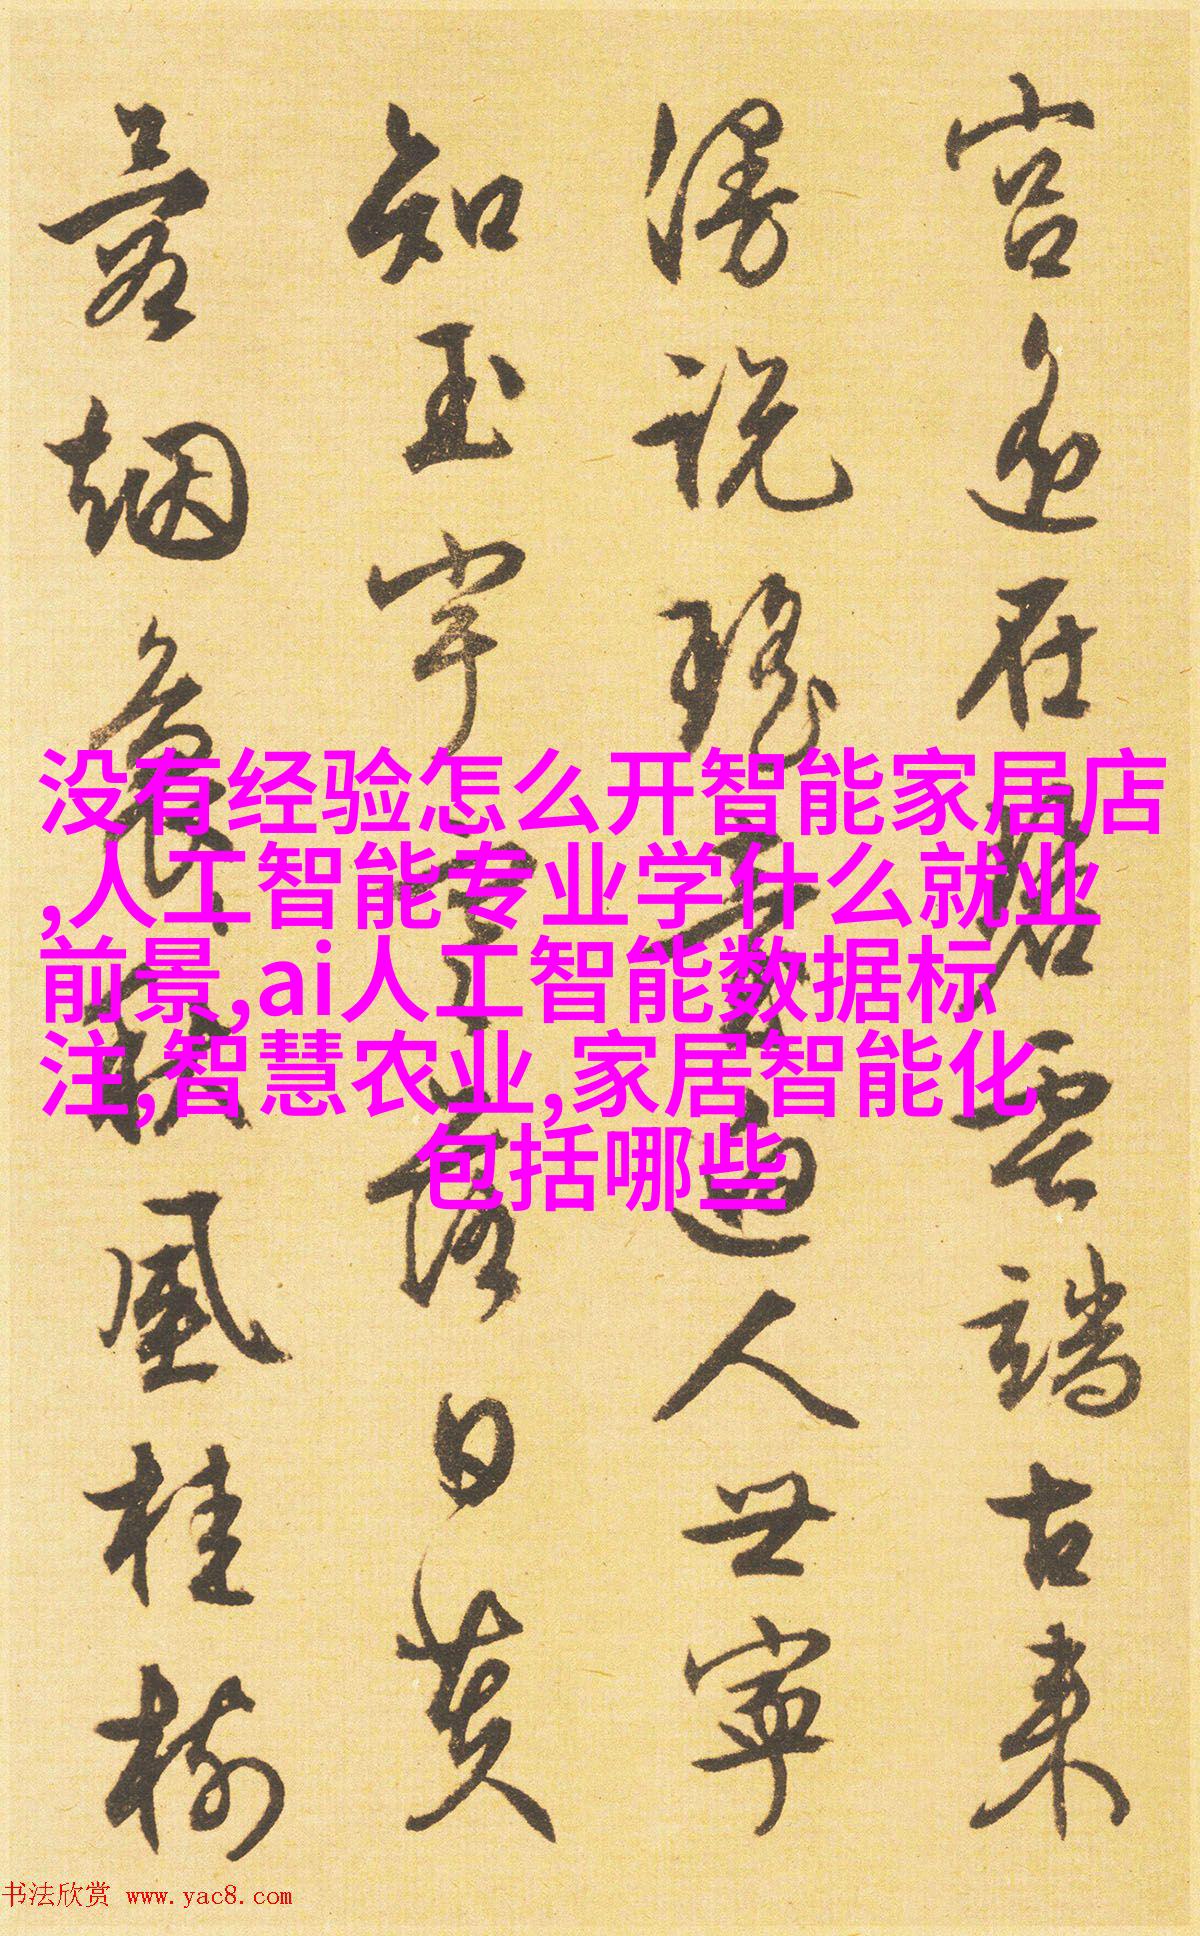 宫在碧雲端古来
漫説瑶人世寧
知玉宇落日黄
烟風桂樹
没有经验怎么开智能家居店
,人工智能专业学什么就业
前景,ai人工智能数据标
注,智慧农业,家居智能化
包括哪些
书法欣赏 www.yac8.com